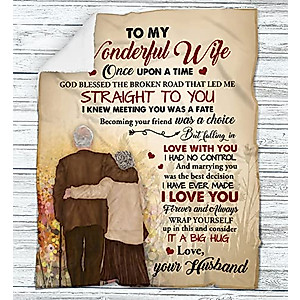 TO MY
Wonderful Wife
Once UPON A TIME
GOD BLESSED THE BROKEN ROAD THAT LED ME
STRAIGHT TO YOU
I KNEW MEETING YOU WAS A FATE
Becoming your friend was a choice
But falling in
LOVE WITH YOU
I HAD NO CONTROL
And marrying you
was the best decision
I HAVE EVER MADE
I LOVE YOU
Forever and Always
WRAP YOURSELF
up in this and consider
IT A BIG HUG
Love,
your Husband